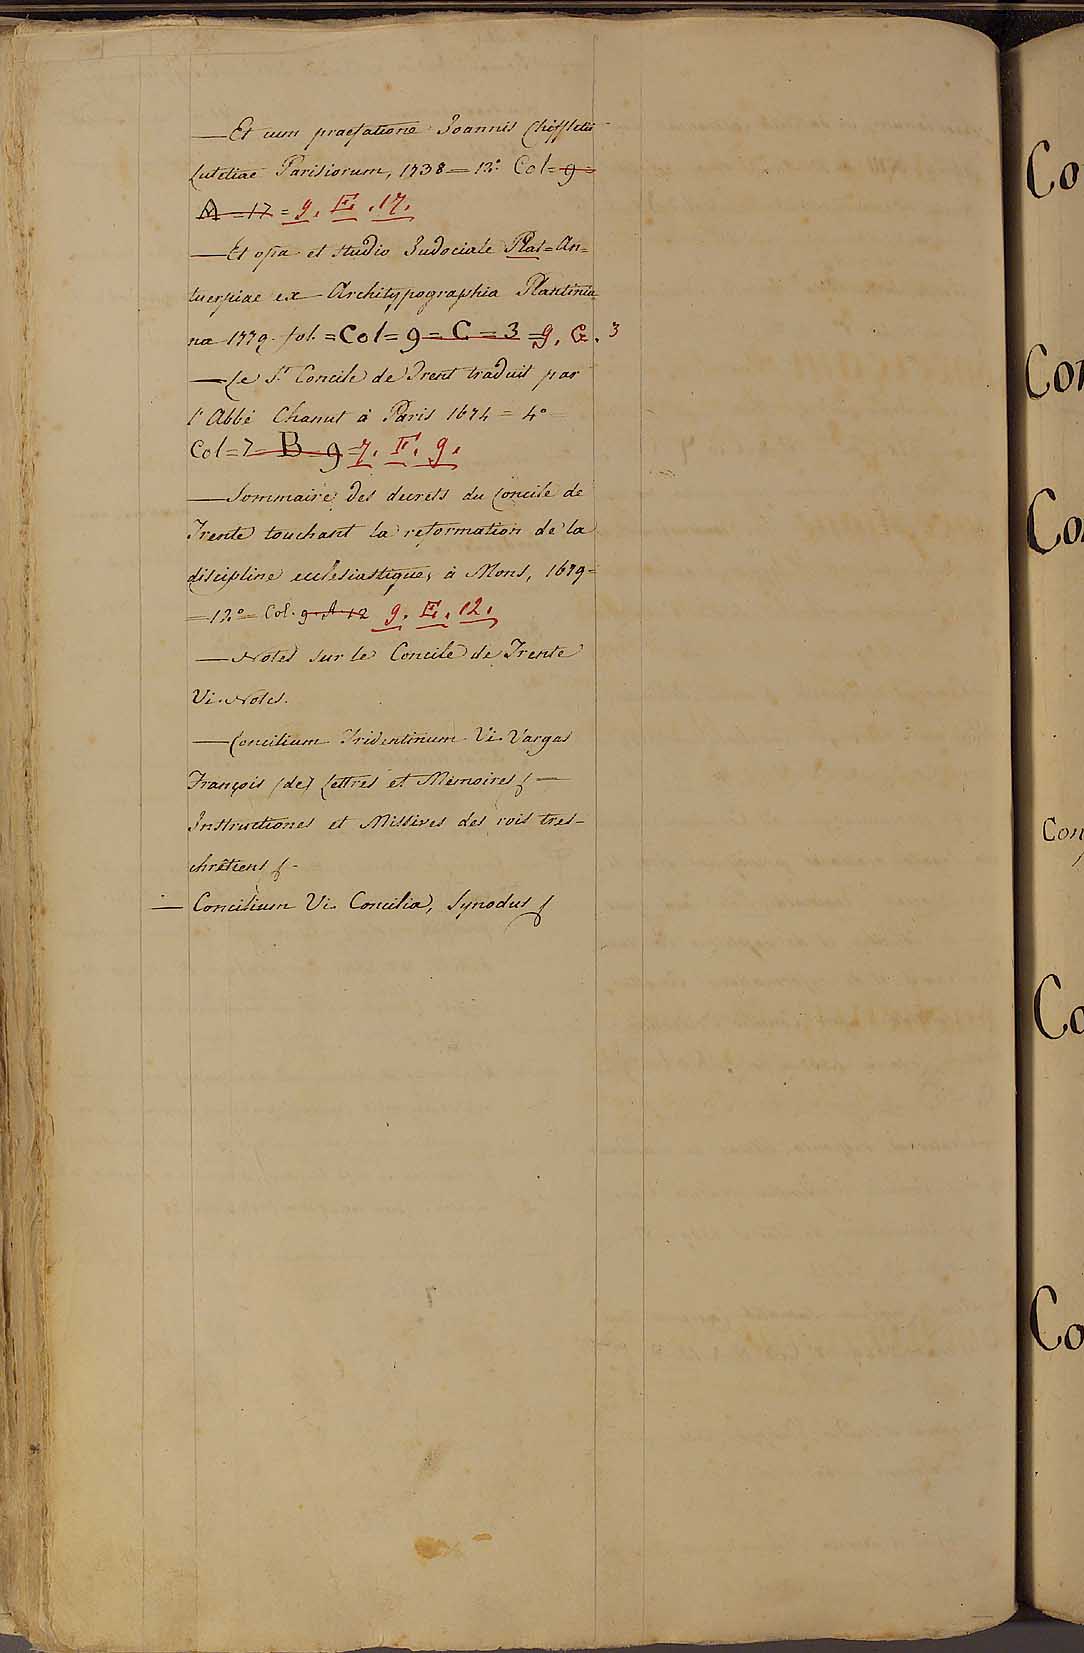 — Et cum praefatione Joannis Chiffletii
Lutetiae Parisiorum, 1738 = 12.° Col = 9 =
A = 17 = 9. E. 17.
— Et opa et studio Judociale Plat = An=
tuerpiae ex Architypographia Plantinia
na 1779. fol. = Col = 9 = C = 3 = 9. G. 3
— Le St Concile de Trent traduit par
l'Abbé Chanut à Paris 1674 = 4° =
Col = 7 B 9 = 7. F. 9.
— Sommaire des decrets du Concile de
Trente touchant la reformation de la
discipline ecclesiastique, à Mons, 1679 =
= 12° = Col. 9. A. 12 9. E. 12.
— Notes sur le Concile de Trente
Vi. Notes.
— Concilium Tridentinum Vi. Vargas
François (de) Lettres et Mémoires —
Instructiones et Missives des rois tres-
chrêtiens -
— Concilium Vi. Concilia, Synodus
Co
Con
Co
Con
Co
Co